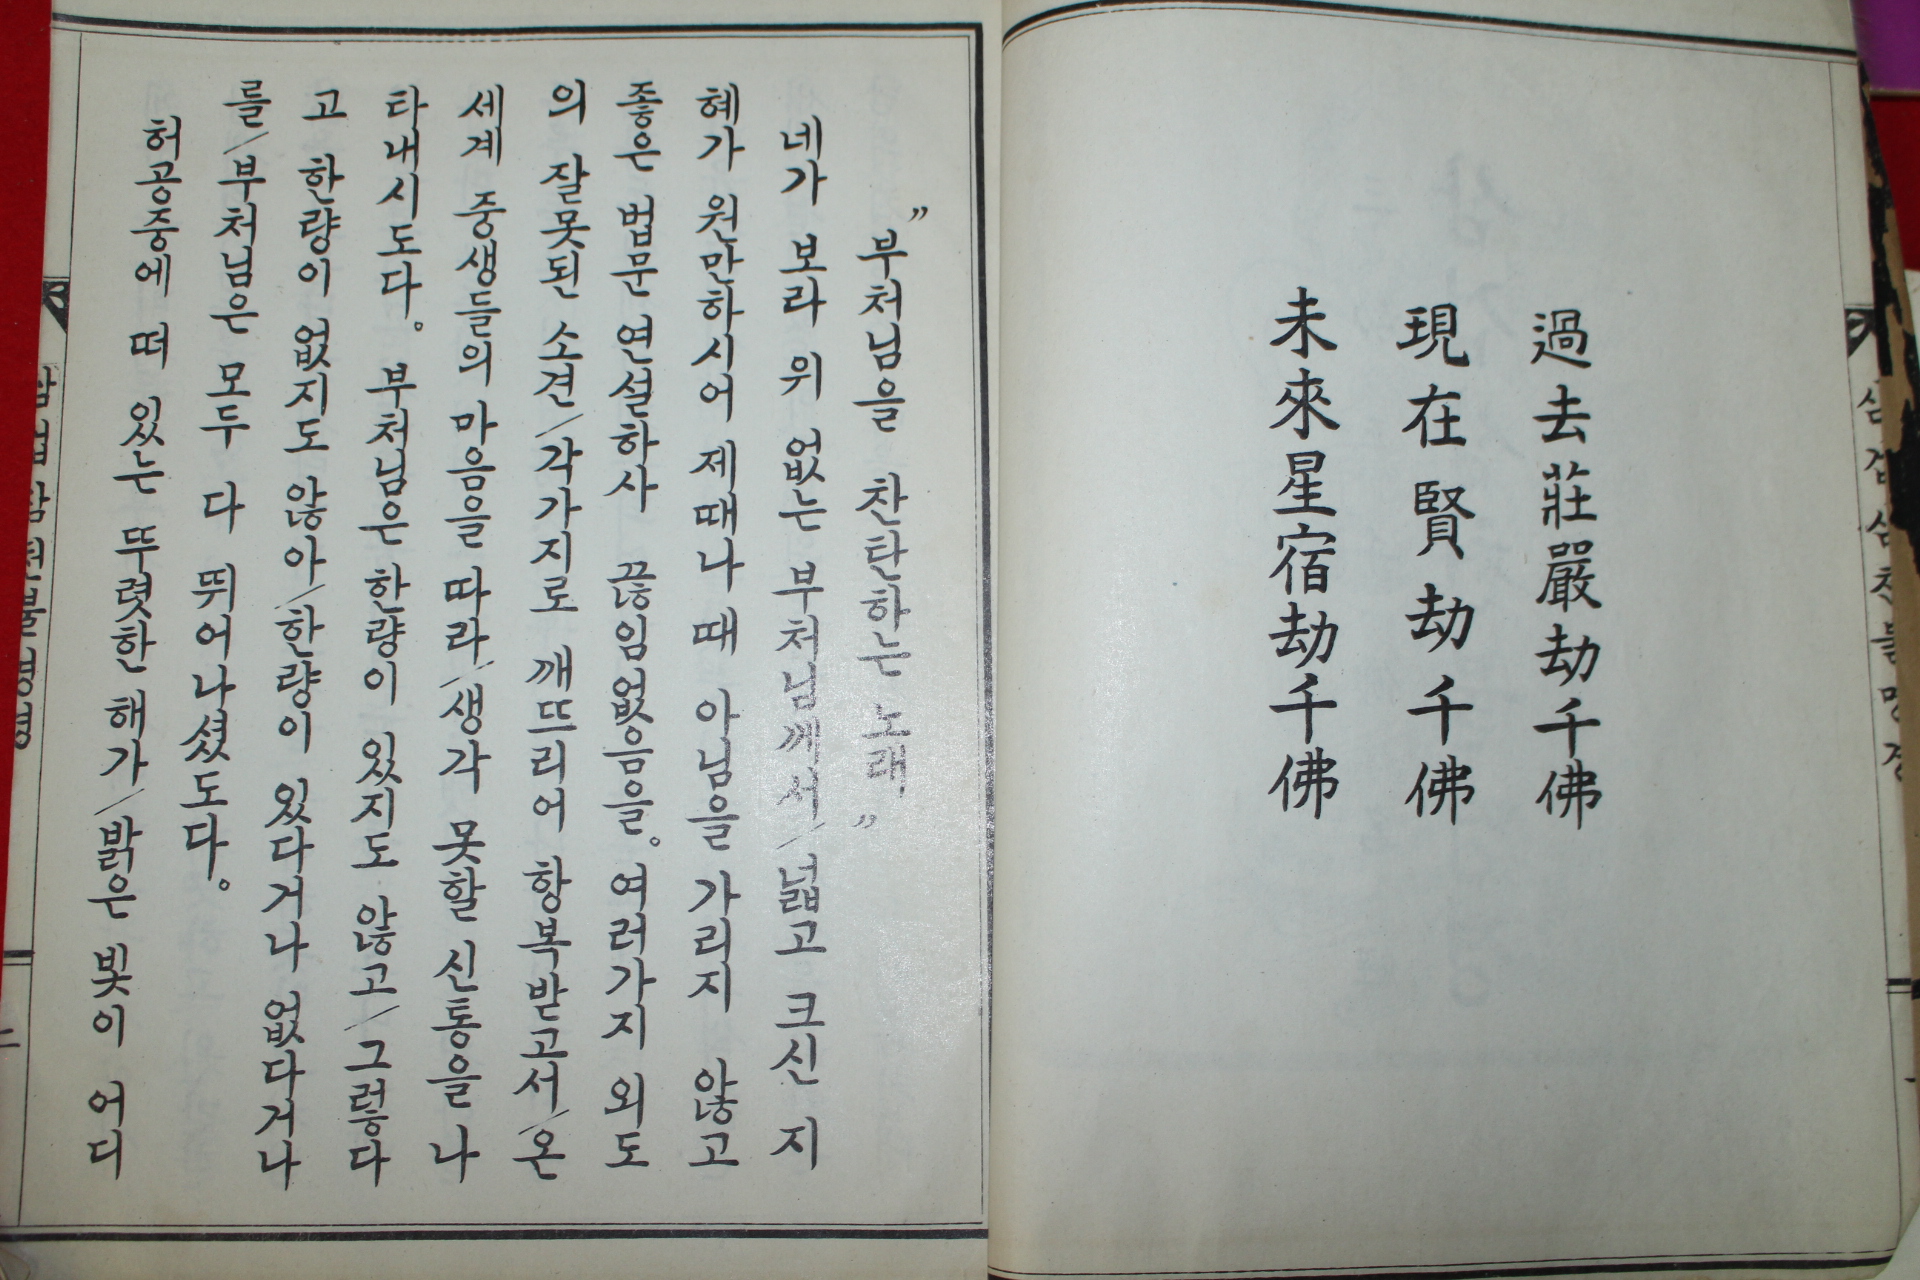 過去莊嚴劫千佛
現在賢劫千佛
未來星宿劫千佛
삼겁삼천불명경
〃부처님을 찬탄하는 노래〃
네가 보라 위 없는 부처님께서/넓고 크신 지
혜가 원만하시어 제때나 때 아님을 가리지 않고
좋은 법문 연설하사 끊임없음을。여러가지 외도
의 잘못된 소견/각가지로 깨뜨리어 항복받고서/온
세계 중생들의 마음을 따라/생각 못할 신통을 나
타내시도다。부처님은 한량이 있지도 않고/그렇다
고 한량이 없지도 않아/한량이 있다거나 없다거나
를/부처님은 모두 다 뛰어나셨도다。
허공중에 떠 있는 뚜렷한 해가/밝은 빛이 어디
삼겁삼천불명경